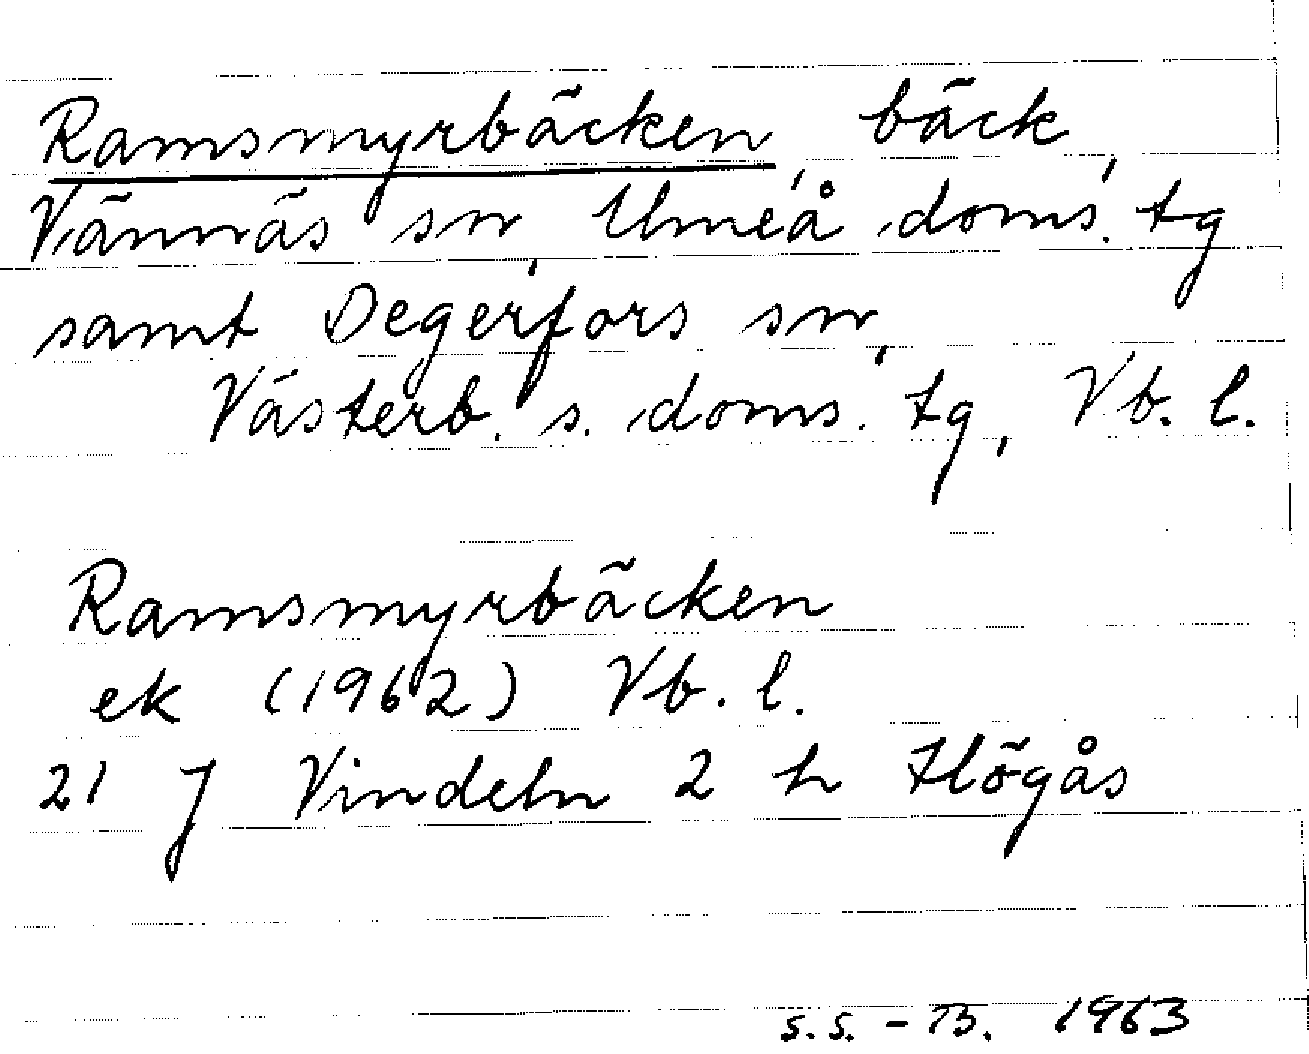 Ramsmyrbäcken, bäck,
Vännäs sn, Umeå doms. tg
samt Degerfors sn,
Västerb. s. doms. tg, Vb. l.
Ramsmyrbäcken
ek (1962) Vb. l.
21 J Vindeln 2 h Högås
S.S. - B. 1963